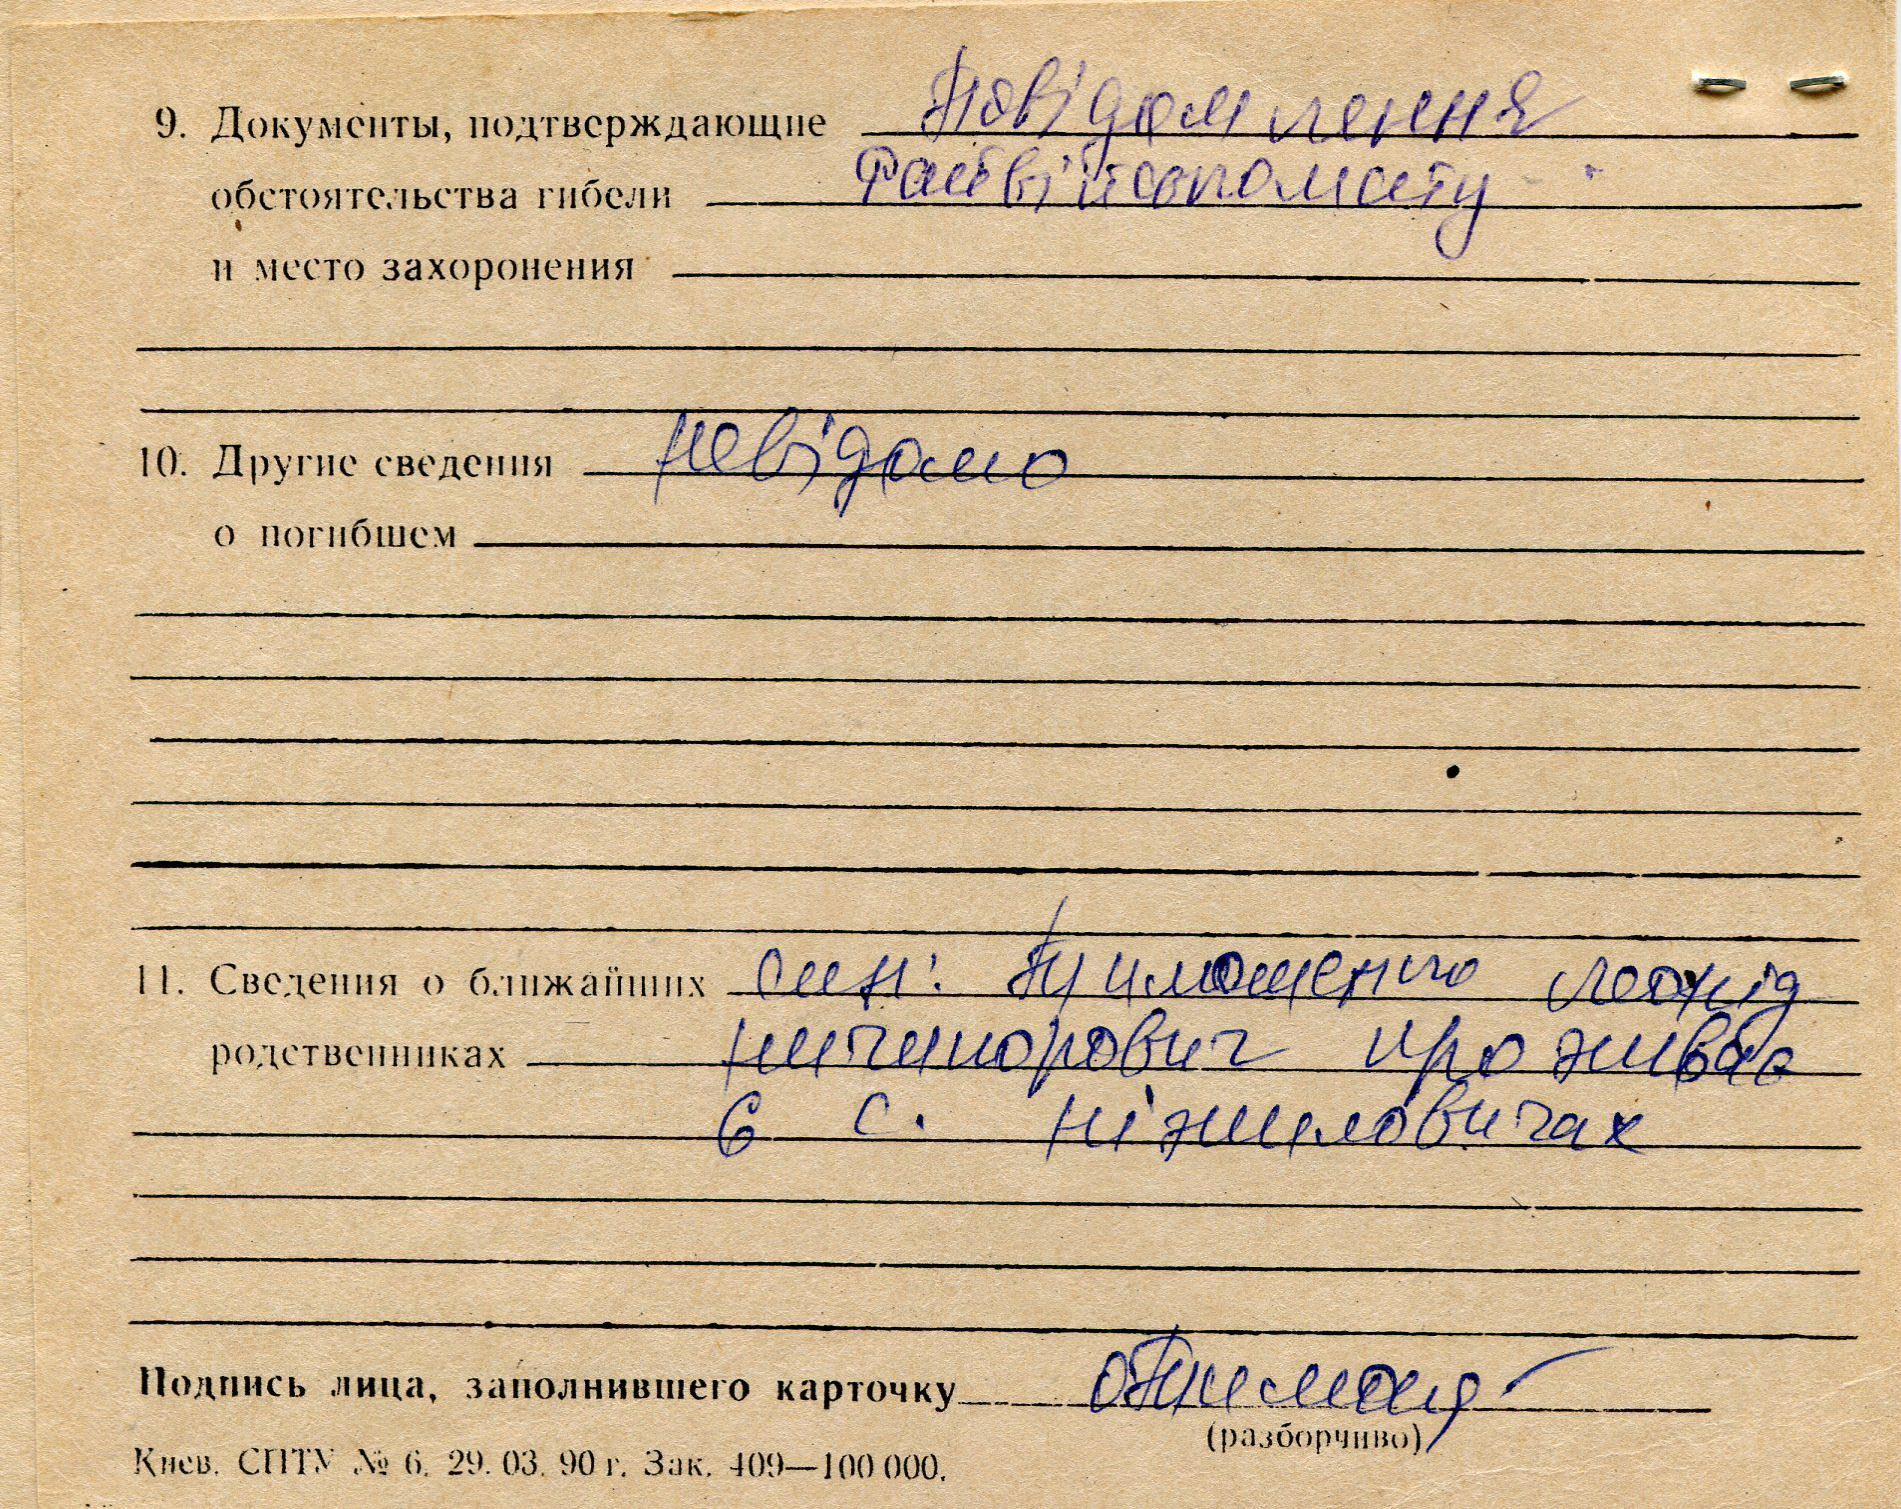 9. Документы, подтверждающие Повідомлення
обстоятельства гибели Райвійськомату
и место захоронения
10. Другие сведения невідомо
о погибшем
11. Сведения о ближайших син: Тимошенко Леонід
родственниках Ничипорович проживає
в с. Ніжиловичах
Подпись лица, заполнившего карточку
(разборчиво)
Киев. СПТУ № 6. 29. 03. 90 г. Зак. 409—100 000.